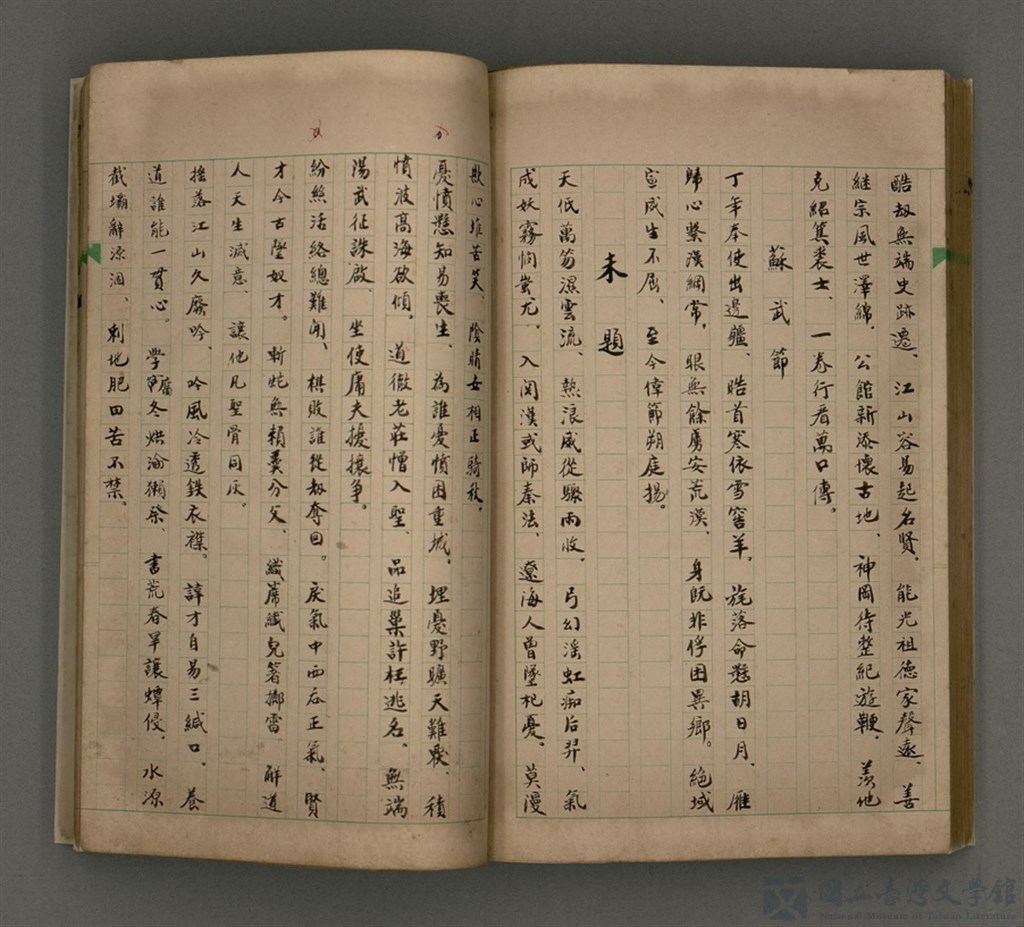 酷劫無端史跡遷、江山容易起名賢、能光祖德家聲遠、善
继宗風世澤綿、公館新添壞古地、神岡待整紀遊鞭、羨他
克紹箕裘士、一卷行看萬口傳。
蘇武節
丁年奉使出邊疆、皓首寒依雪窖羊。旄落命懸胡日月、雁
歸心繫漢綱常。眼無餘虜安荒漠、身既非俘困異鄉。絕域
寧成生不屈、至今偉節朔庭揚。
未題
天低萬笏濕雲流、熱浪威從驟雨收。弓幻滛虹痴后羿、氣
成妖霧恫蚩尤、入関漢或師秦法、遼海人曾墜杞憂。莫漫
欺心堆苦笑、陰晴女相正驕秋。
憂憤懸知易喪生、為誰憂憤困重城。埋憂野曠天難厭、積
憤波高海欲傾。道微老莊憎入聖、品追巢許枉逃名、無端
湯武征誅啟、坐使庸夫擾攘争。
紛絲活絡總難闲、棋敗誰從劫奪回。戾氣中而存正氣、賢
才今古墮奴才。斬蛇無賴羹分父、織蓆纖兒箸擲雷、解道
人天生滅意、讓他凡聖骨同灰。
捨落江山久廢吟、吟風冷透鉄衣襟。諱才自易三緘口、養
道誰能一貫心。学甲腐冬烘渝獺祭、書荒春旱讓蟫侵、水源
截壩辭源涸、剩地肥田苦不禁。
國立臺灣文學館
National Museum of Taiwan Literature